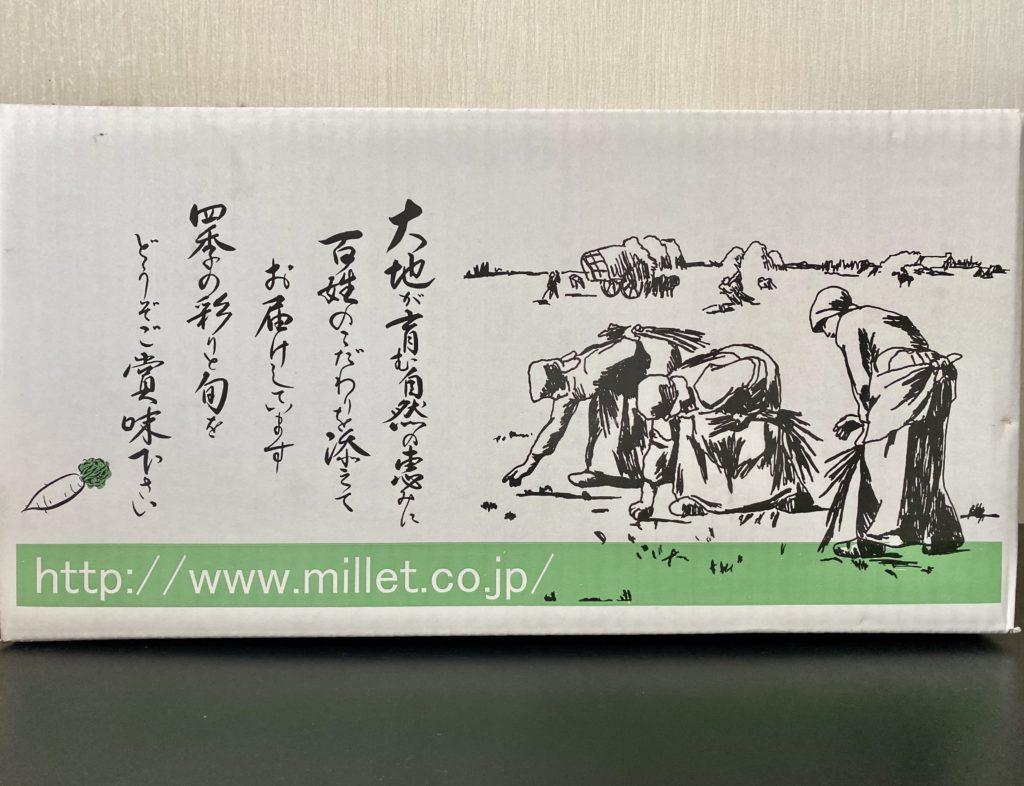 大地が育む自然の恵みに
百姓のこだわりを添えて
お届けしています
四季の彩りと旬を
どうぞご賞味下さい
http://www.millet.co.jp/